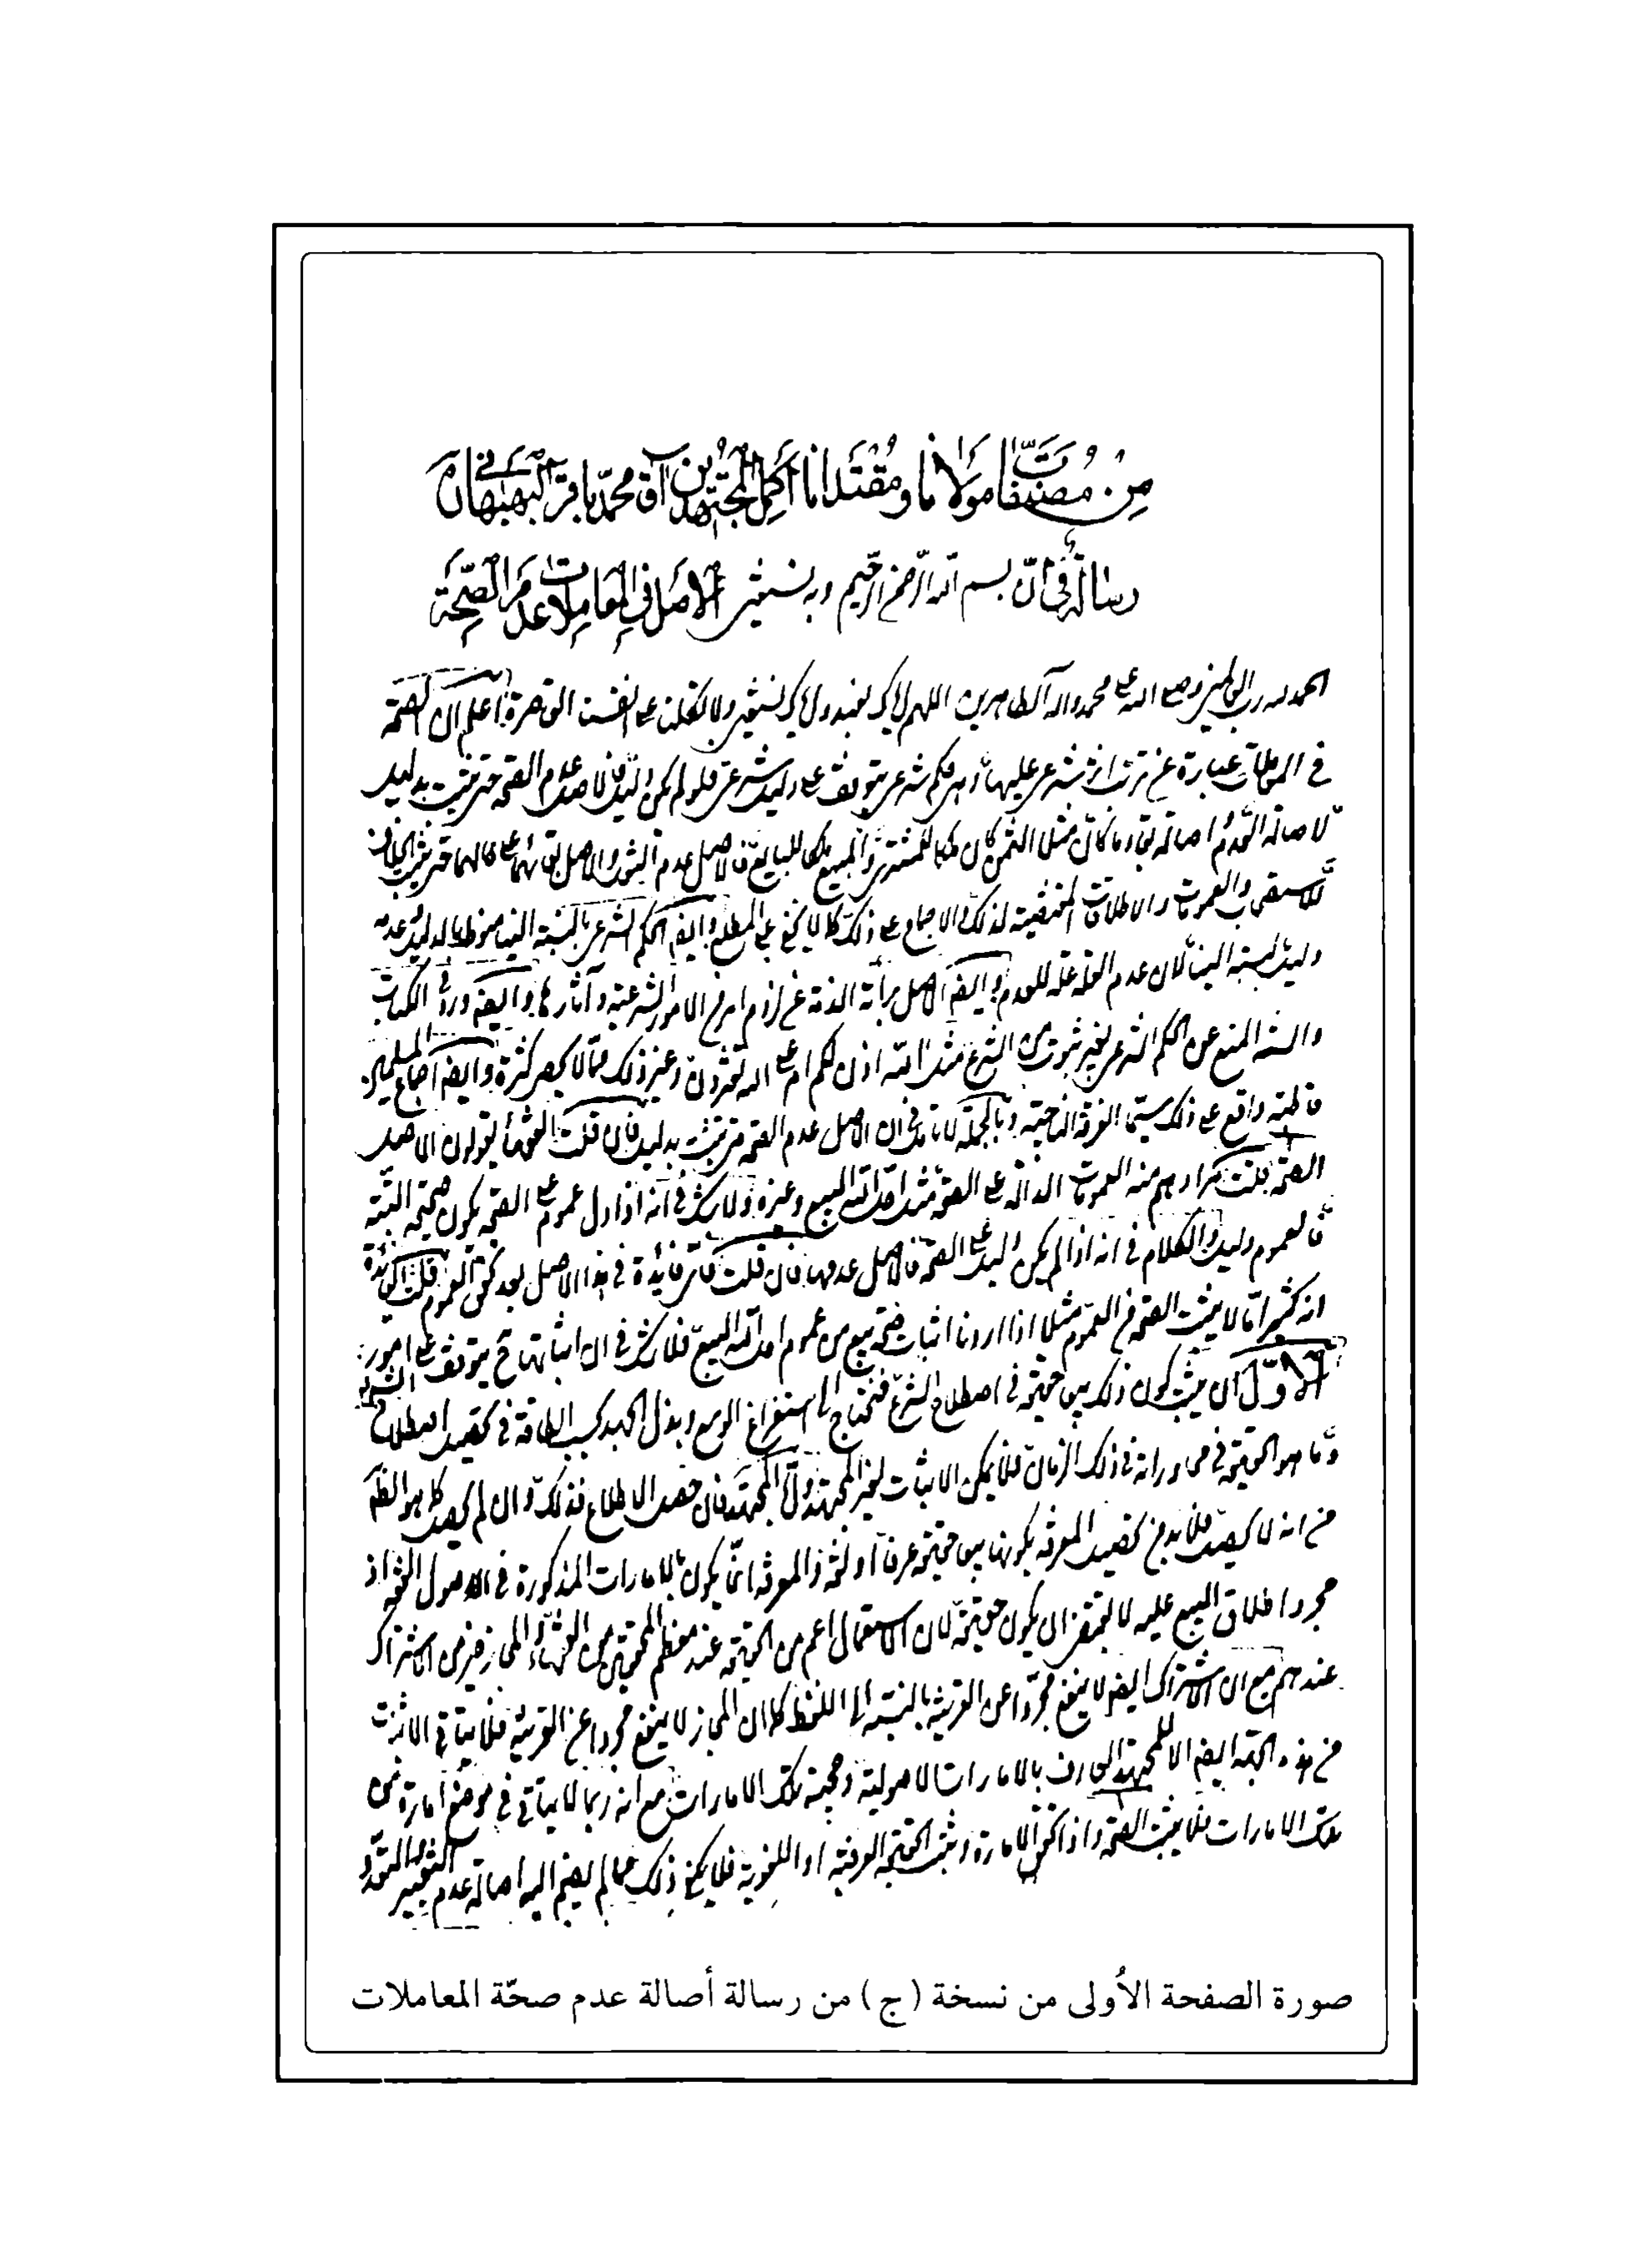 من مصنفات مولانا ومقتدانا أكمل المجتهدين آقا محمد باقر البهبهاني
رسالة في أنّ بسم الله الرحمن الرحيم وبه نستعين الأصل في المعاملات عدم الصّحّة
الحمد لله رب العالمين وصلى الله على محمد واله الطاهرين اللهم اياك نعبد واياك نستعين ولا تكلنا على انفسنا القاصرة اعلم ان الصحة
في المعاملات عبارة عن ترتب اثر شرعي عليها وهو حكم شرعي يتوقف على دليل شرعي فلو لم يكن دليل فالاصل عدم الصحة حتى يثبت بدليل
لاصالة العدم واصالة بقاء ما كان مثلا الثمن كان ملكا للمشتري والمبيع ملكا للبايع فالاصل عدم النقل والاصل بقائهما على حالهما حتى يثبت الخلاف
للاستصحاب والعمومات والاطلاقات المقتضية لذلك والاجماع على ذلك كما لا يخفى على المطلع وايضا الحكم الشرعي بالنسبة الينا منوط بالدليل فعدمه
دليل بالنسبة الينا لان عدم العلة علة للعدم وايضا الاصل براءة الذمة عن لزوم امر من الامور الشرعية وآثارها وايضا ورد في الكتاب
والسنة المنع عن الحكم الشرعي بغير ثبوت من الشرع مثل ءالله اذن لكم ام على الله تفترون وغير ذلك مما لا يحصى كثرة وايضا اجماع المسلمين
قاطبة واقع على ذلك سيما الفرقة الناجية وبالجملة لا تامل في ان الاصل عدم الصحة حتى يثبت بدليل فان قلت الفقهاء يقولون الاصل
الصحة قلت مرادهم منه العمومات الدالة على الصحة مثل احل الله البيع وغيره ولا شك في انه اذا دل عموم على الصحة يكون صحيحة البتة
فالعموم دليل والكلام في انه اذا لم يكن دليل على الصحة فالاصل عدمها فان قلت فاي فائدة في هذا الاصل بعد تحقق العموم قلت الفائدة
انه كثيرا ما لا يثبت الصحة من العموم مثلا اذا اردنا اثبات صحة بيع من عموم احل الله البيع فلا شك في ان اثباتها ح يتوقف على امور:
الأوّل ان يثبت كون ذلك بيعا حقيقة في اصطلاح الشرع فنحتاج الى استفراغ الوسع وبذل الجهد بحسب الطاقة في تحصيل اصطلاح الشرع
وما هو الحقيقة في محاوراته في ذلك الزمان فلا يمكن الاثبات لغير المجتهد واما المجتهد فان حصل الاطلاع فذلك وان لم يحصل كما هو الظاهر
من انه لا يحصل فلا بد من تحصيل المعرفة بكونها بيعا حقيقة عرفا او لغة والمعرفة انما يكون بالامارات المذكورة في الاصول الفقه اذ
مجرد اطلاق البيع عليه لا يقتضي ان يكون حقيقة لان الاستعمال اعم من الحقيقة عند معظم المحققين من الفقهاء والمجاز خير من الاشتراك
عندهم مع ان الاشتراك ايضا لا ينفع مجردا عن القرينة بالنسبة الى اللفظ كما ان المجاز لا ينفع مجردا عن القرينة فلا يتاتى الاثبات
من هذه الجهة ايضا الا للمجتهد العارف بالامارات الاصولية وحجية تلك الامارات مع انه ربما لا يتاتى في موضع امارة من
تلك الامارات فلا يثبت الصحة واذا تحقق الامارة وثبت الحقيقة العرفية او اللغوية فلا يكفي ذلك ما لم يضم اليه اصالة عدم التغيير والتعدد
صورة الصفحة الأولى من نسخة (ج) من رسالة أصالة عدم صحّة المعاملات